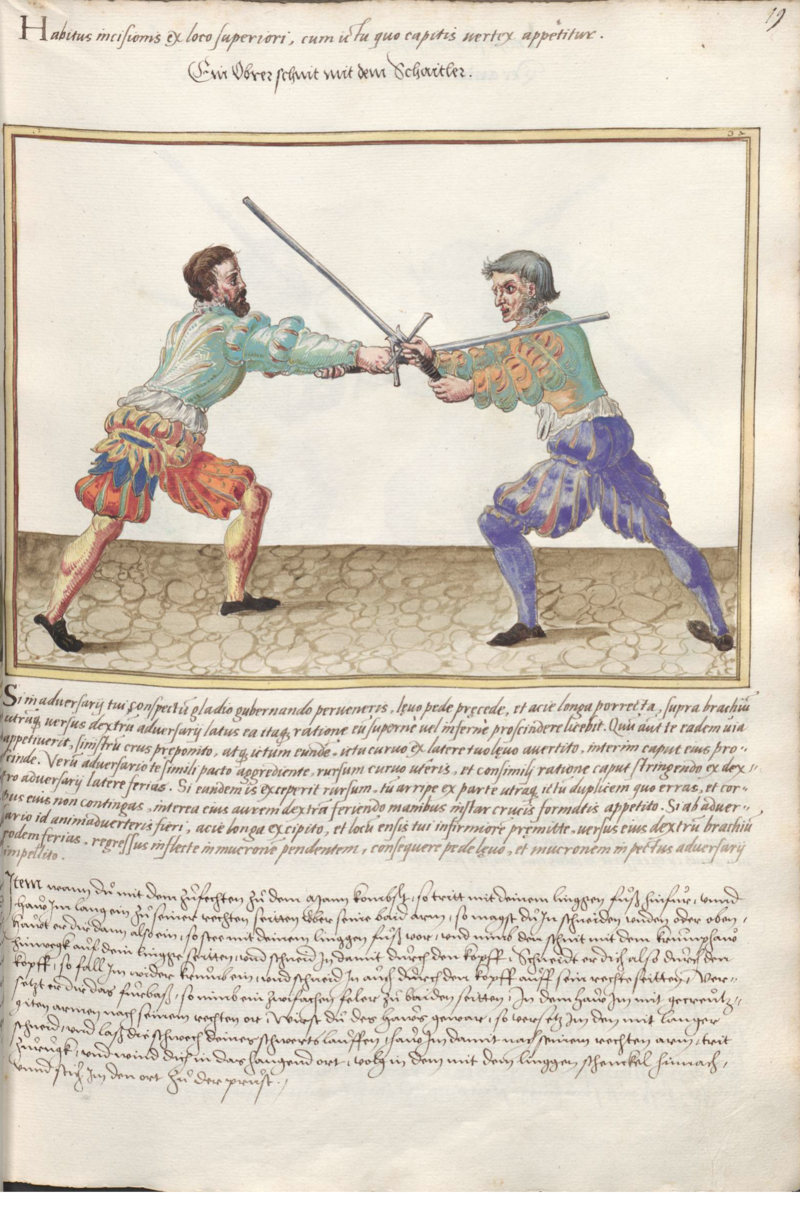 19
Habitus incisionis ex loco superiori, cum ictu quo capitis vertex appetitur.
Ein Obrer schnit mit dem Schaitler.
Si in adversarij tui conspectũ gladio gubernando perveneris, lęvo pede pręcede, et acie longa porrecta, supra brachiũ
utrũq. versus dextrũ adversarij latus ea itaq. ratione eũ supernè vel infernè proscindere licebit. Quũ aũt te eadem via
appetiverit, sinistrũ crus preponito, atq. ictum eunde', ictu curvo ex latere tuo lęvo avertito, interim caput eius pro-
scinde. Verũ adversario te simili pacto aggrediente, rursum curvo uteris, et consimili ratione caput stringendo ex dex-
tro adversarij latere ferias. Si eandem is exceperit rursum, tu arripe ex parte utraq. ictu duplicem quo erras, et cor-
pus eius non contingas, interea eius aurem dextrã feriendo manibus instar crucis formatis appetito. Si ab adver-
sario id animadverteris fieri, acie longa excipito, et locũ ensis tui infirmiorẽ premitte, versus eius dextrũ brachiũ
eodem ferias, regressus inflecte in mucronẽ pendentem, consequere pede lęvo, et mucronem in pectus adversarij
impellito.
Item wann dů mit dem zůfechten zů dem Mann kombst, so tritt mit deinem linggen fůß hinfur, unnd
haw Im lang ein zů seiner rechten seitten uber seine baid arm, so magst dů In schneiden unden oder oben,
hawt er dir dann also ein, so stee mit deinem linggen fůß vor, und nimb den schnit mit dem krumphaw
hinwegk auf dein lingge seitten, und schneid In damit durch den kopff, Schneidt er dich also durch den
kopff, so fall Im wider krumb ein, und schneid In auch durch den kopff auff sein rechte seitten, Ver-
setzt er dir das fůrbaß, so nimb ein zwifachen feler zů baiden seitten, In dem haw Im mit gecreutz-
gten armen nach seinem rechten or, Wirst dů des haws gewar, so versetz Im den mit langer
schneid, und laß die schwech deines schwerts lauffen, haw In damit nach seinem rechten arm, trit
zurugk, und wind dich in das hangend ort, volg in dem mit dem linggen schenckel hinnach,
unnd stich Im den ort zů der prust.